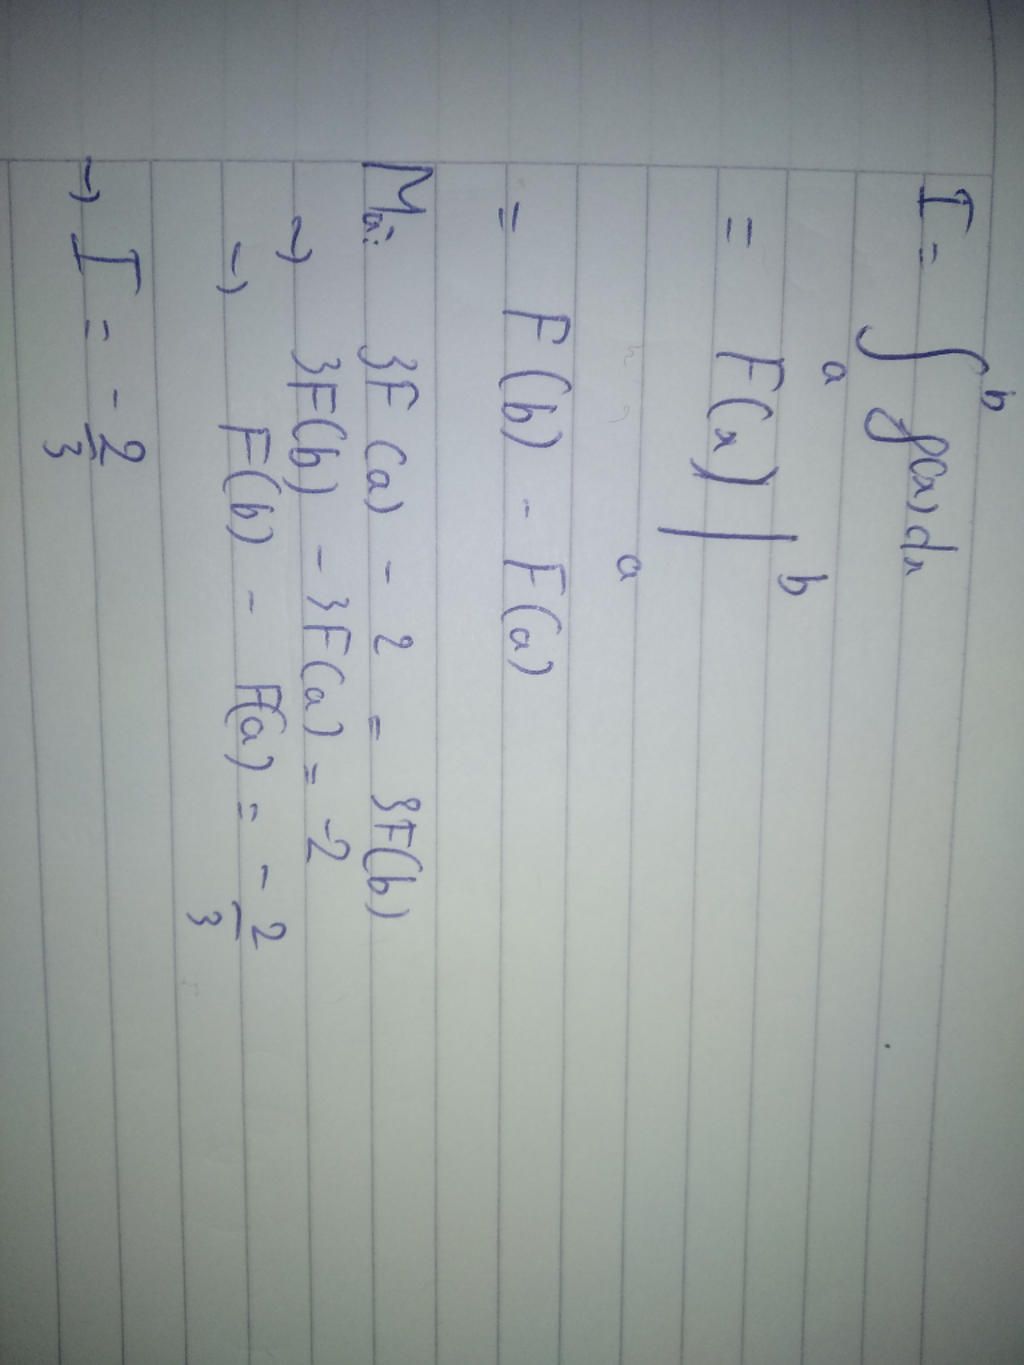 I = ∫ₐᵇ f(x) dx
= F(x) |ₐᵇ
= F(b) - F(a)
Mà: 3F(a) - 2 = 3F(b)
→ 3F(b) - 3F(a) = -2
→ F(b) - F(a) = -2/3
→ I = -2/3